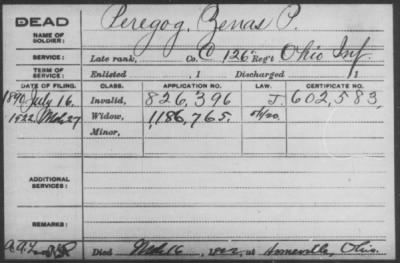 DEAD
NAME OF SOLDIER: Peregoy, Zenas P.
SERVICE: Late rank, Co. C 126" Reg't Ohio Inf.
TERM OF SERVICE: Enlisted , 1 Discharged 1
DATE OF FILING. CLASS. APPLICATION NO. LAW. CERTIFICATE NO.
1890 July 16. Invalid, 826,396 J. 602,583
1922 Mch 27 Widow, 1,186,765.
Minor,
ADDITIONAL SERVICES:
REMARKS:
Died Mch 16, 1922, at Ohio.